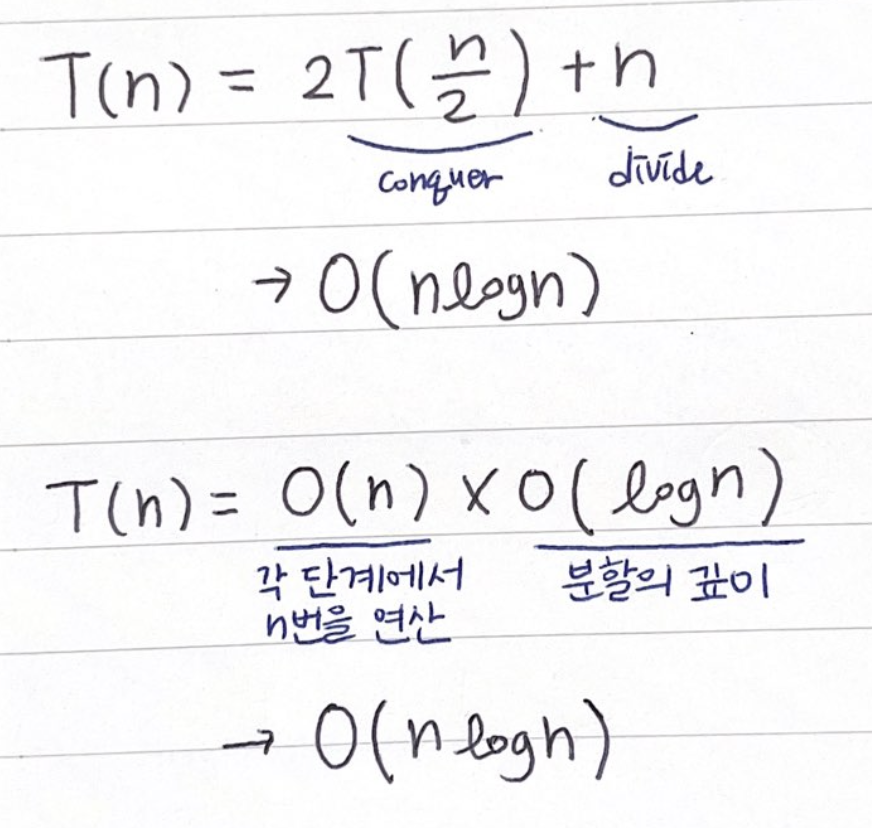 T(n) = 2T(n/2) + n
conquer divide
→ O(nlogn)
T(n) = O(n) × O(logn)
각 단계에서 분할의 깊이
n번을 연산
→ O(nlogn)